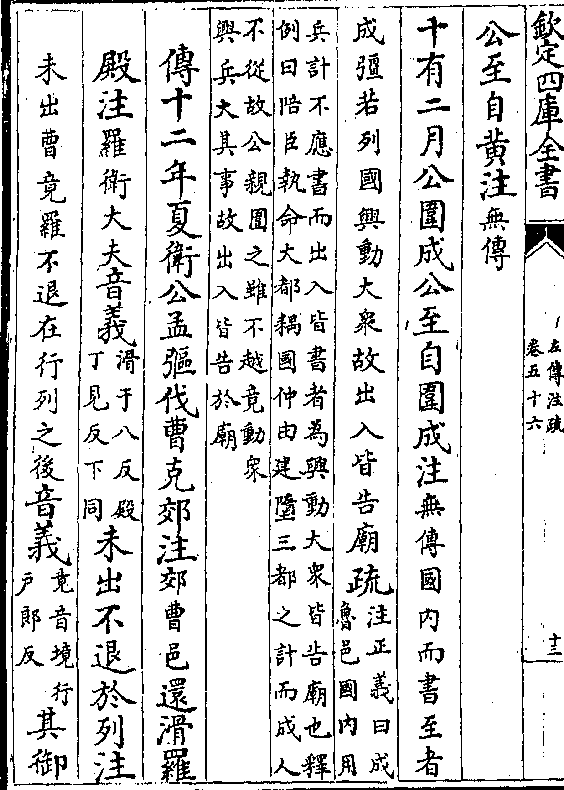 欽定四庫全書
左傳注疏
卷五十六
十三
公至自黄注無傳
十有二月公圍成公至自圍成注無傳國内而書至者
成彊若列國興動大衆故出入皆告廟疏注正義曰成
魯邑國内用
兵計不應書而出入皆書者為興動大衆皆告廟也釋
例曰陪臣執命大都耦國仲由建墮三都之計而成人
不從故公親圍之雖不越竟動衆
興兵大其事故出入皆告於廟
傳十二年夏衛公孟彄伐曹克郊注郊曹邑還滑羅
殿注羅衛大夫音義滑于八反殿
丁見反下同
未出不退於列注
未出曹竟羅不退在行列之後音義竟音境行
戸郎反
其御